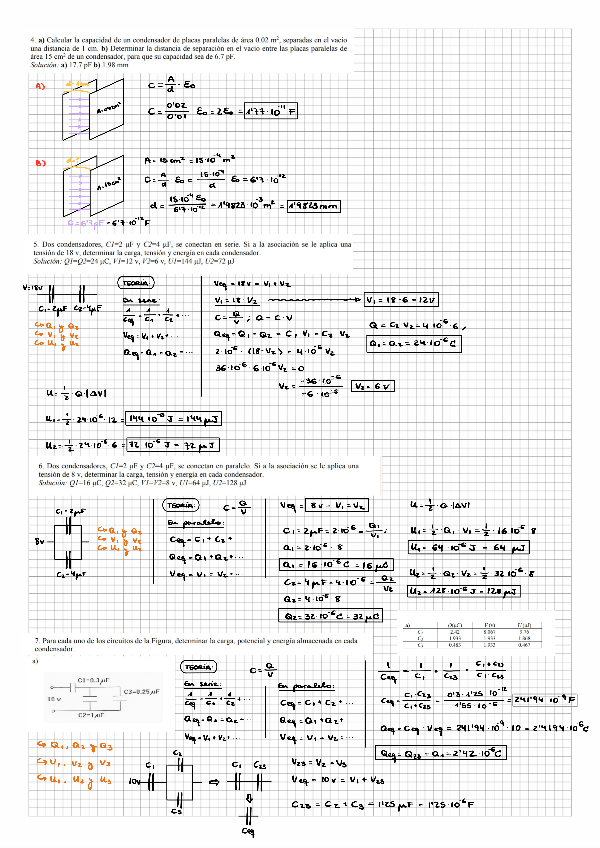 4. a) Calcular la capacidad de un condensador de placas paralelas de área 0.02 m², separadas en el vacío
una distancia de 1 cm. b) Determinar la distancia de separación en el vacío entre las placas paralelas de
área 15 cm² de un condensador, para que su capacidad sea de 6.7 pF.
Solución: a) 17.7 pF b) 1.98 mm
A)
C = A/d · ε₀
C = 0'02/0'01 ε₀ = 2ε₀ = 1'77·10⁻¹¹ F
B)
A = 15 cm²
A = 15 cm² = 15·10⁻⁴ m²
C = A/d ε₀ = 15·10⁻⁴/d ε₀ = 6'7·10⁻¹²
d = 15·10⁻⁴ ε₀/6'7·10⁻¹² = 1'9823·10⁻³ m² = 1'9823 mm
C = 6'7 pF = 6'7·10⁻¹² F
5. Dos condensadores, C1=2 µF y C2=4 µF, se conectan en serie. Si a la asociación se le aplica una
tensión de 18 v, determinar la carga, tensión y energía en cada condensador.
Solución: Q1=Q2=24 µC, V1=12 v, V2=6 v, U1=144 µJ, U2=72 µJ
V=18v
C₁=2µF C₂=4µF
↪ Q₁ y Q₂
↪ V₁ y V₂
↪ U₁ y U₂
TEORÍA:
En serie:
1/Ceq = 1/C₁ + 1/C₂ + ...
Veq = V₁ + V₂ + ...
Qeq = Q₁ = Q₂ = ...
Veq = 18v = V₁ + V₂
V₁ = 18 - V₂ → V₁ = 18 - 6 = 12v
C = Q/V ; Q = C·V
Qeq = Q₁ = Q₂ = C₁ V₁ = C₂ V₂
2·10⁻⁶ · (18-V₂) = 4·10⁻⁶ V₂
36·10⁻⁶ - 6·10⁻⁶ V₂ = 0
V₂ = -36·10⁻⁶/-6·10⁻⁶ V₂ = 6 v
Q = C₂ V₂ = 4·10⁻⁶·6,
Q₁ = Q₂ = 24·10⁻⁶ C
U = 1/2 · Q·|ΔV|
U₁ = 1/2 · 24·10⁻⁶ · 12 = 144·10⁻⁶ J = 144 µJ
U₂ = 1/2 · 24·10⁻⁶ · 6 = 72·10⁻⁶ J = 72 µJ
6. Dos condensadores, C1=2 µF y C2=4 µF, se conectan en paralelo. Si a la asociación se le aplica una
tensión de 8 v, determinar la carga, tensión y energía en cada condensador.
Solución: Q1=16 µC, Q2=32 µC, V1=V2=8 v, U1=64 µJ, U2=128 µJ
C₁=2µF
8v
C₂=4µF
↪ Q₁ y Q₂
↪ V₁ y V₂
↪ U₁ y U₂
TEORÍA: C = Q/V
En paralelo:
Ceq = C₁ + C₂ +
Qeq = Q₁ + Q₂ + ...
Veq = V₁ = V₂ = ...
Veq = 8v = V₁ = V₂
C₁ = 2µF = 2·10⁻⁶ = Q₁/V₁
Q₁ = 2·10⁻⁶ · 8
Q₁ = 16·10⁻⁶ C = 16 µC
C₂ = 4µF = 4·10⁻⁶ = Q₂/V₂
Q₂ = 4·10⁻⁶ · 8
Q₂ = 32·10⁻⁶ C = 32 µC
U = 1/2 · Q·|ΔV|
U₁ = 1/2 · Q₁ · V₁ = 1/2 · 16·10⁻⁶ · 8
U₁ = 64·10⁻⁶ J = 64 µJ
U₂ = 1/2 · Q₂ · V₂ = 1/2 · 32·10⁻⁶ · 8
U₂ = 128·10⁻⁶ J = 128 µJ
a) Q(µC) V (v) U (µJ)
C₁ 2.42 8.067 9.76
C₂ 1.933 1.933 1.868
C₃ 0.483 1.933 0.467
7. Para cada uno de los circuitos de la Figura, determinar la carga, potencial y energía almacenada en cada
condensador
a)
C1=0.3 µF
10 v
C3=0.25 µF
C2=1 µF
↪ Q₁, Q₂ y Q₃
↪ V₁, V₂ y V₃
↪ U₁, U₂ y U₃
TEORÍA: C = Q/V
En serie:
1/Ceq = 1/C₁ + 1/C₂ + ...
Qeq = Q₁ = Q₂ = ...
Veq = V₁ + V₂ + ...
En paralelo:
Ceq = C₁ + C₂ + ...
Qeq = Q₁ + Q₂ +
Veq = V₁ = V₂ = ...
1/Ceq = 1/C₁ + 1/C₂₃ = C₁+C₂₃/C₁·C₂₃
Ceq = C₁·C₂₃/C₁+C₂₃ = 0'3·1'25·10⁻¹²/1'55·10⁻⁶ = 241'94·10⁻⁹ F
Qeq = Ceq · Veq = 241'94·10⁻⁹·10 = 2'4194·10⁻⁶ C
Qeq = Q₂₃ = Q₁ = 2'42·10⁻⁶ C
10v C₁ C₂ C₃ ⇒ C₁ C₂₃
Ceq
V₂₃ = V₂ = V₃
Veq = 10v = V₁ + V₂₃
C₂₃ = C₂ + C₃ = 1'25 µF = 1'25·10⁻⁶ F